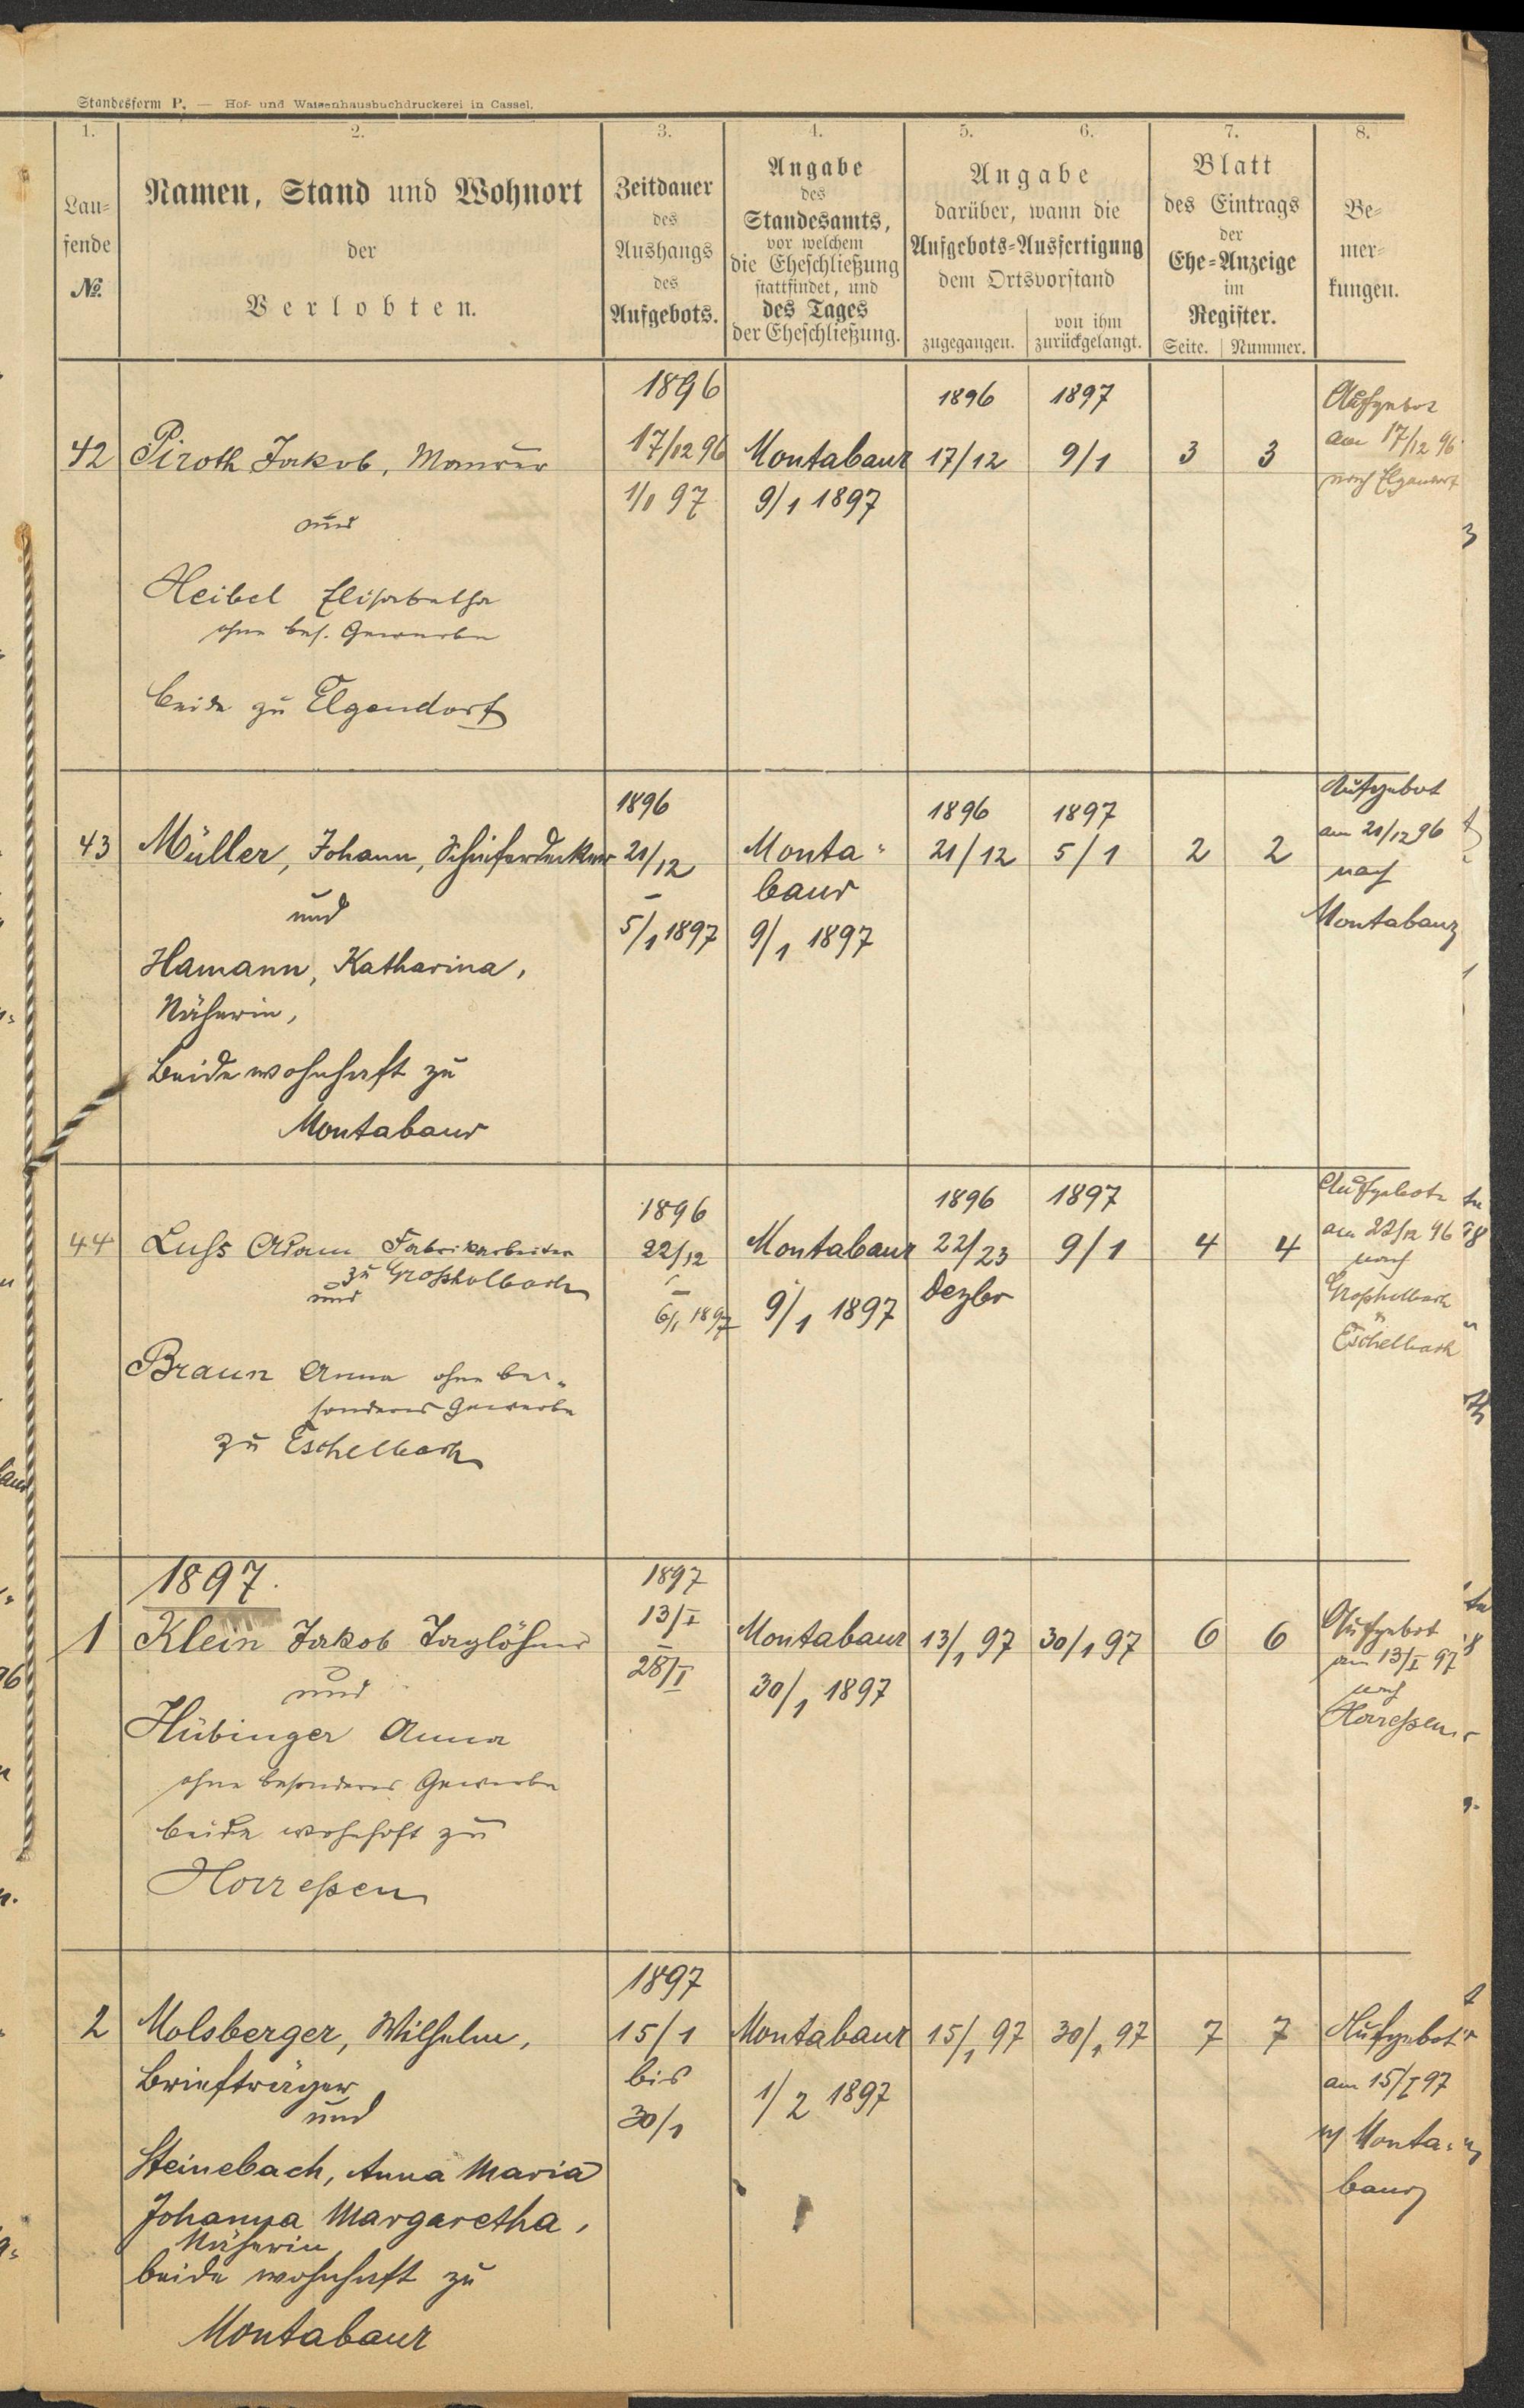 Standesform P. — Hof- und Waisenhausbuchdruckerei in Cassel.
1. 2. 3. 4. 5. 6. 7. 8.
Lau-
fende
No.
Namen, Stand und Wohnort
der
Verlobten.
Zeitdauer
des
Aushangs
des
Aufgebots.
Angabe
des
Standesamts,
vor welchem
die Eheschließung
stattfindet, und
des Tages
der Eheschließung.
Angabe
darüber, wann die
Aufgebots-Ausfertigung
dem Ortsvorstand
zugegangen.
von ihm
zurückgelangt.
Blatt
des Eintrags
der
Ehe-Anzeige
im
Register.
Seite. Nummer.
Be-
mer-
kungen.
42
Piroth Jakob, Maurer
und
Heibel Elisabetha
ohne bes. Gewerbe
beide zu Elgendorf
1896
17/12 96
97
Montabaur
9/1 1897
1896
17/12
1897
9/1
3 3
Aufgebot
am 17/12 96
nach Elgendorf
43
Müller, Johann, Schieferdecker
und
Hamann, Katharina,
Näherin,
beide wohnhaft zu
Montabaur
1896
21/12
–
5/1 1897
Monta-
baur
9/1 1897
1896
21/12
1897
5/1
2 2
Aufgebot
am 21/12 96
nach
Montabaur
44
Luhs Adam Fabrikarbeiter
zu Großholbach
und
Braun Anna ohne be-
sonderes Gewerbe
zu Eschelbach
1896
22/12
–
6/1 1897
Montabaur
9/1 1897
1896
22/23
Dezbr
1897
9/1
4 4
Aufgebote
am 22/12 96
nach
Großholbach
u
Eschelbach
1897.
1
Klein Jakob Taglöhner
und
Hübinger Anna
ohne besonderes Gewerbe
beide wohnhaft zu
Horreßen
1897
13/I
–
28/I
Montabaur
30/1 1897
13/1 97
30/1 97
6 6
Aufgebot
am 13/I 97
nach
Horreßen
2
Molsberger, Wilhelm,
Briefträger
und
Steinebach, Anna Maria
Johanna Margaretha,
Näherin
beide wohnhaft zu
Montabaur
1897
15/1
bis
30/1
Montabaur
1/2 1897
15/1 97
30/1 97
7 7
Aufgebot
am 15/I 97
n/ Monta-
baur